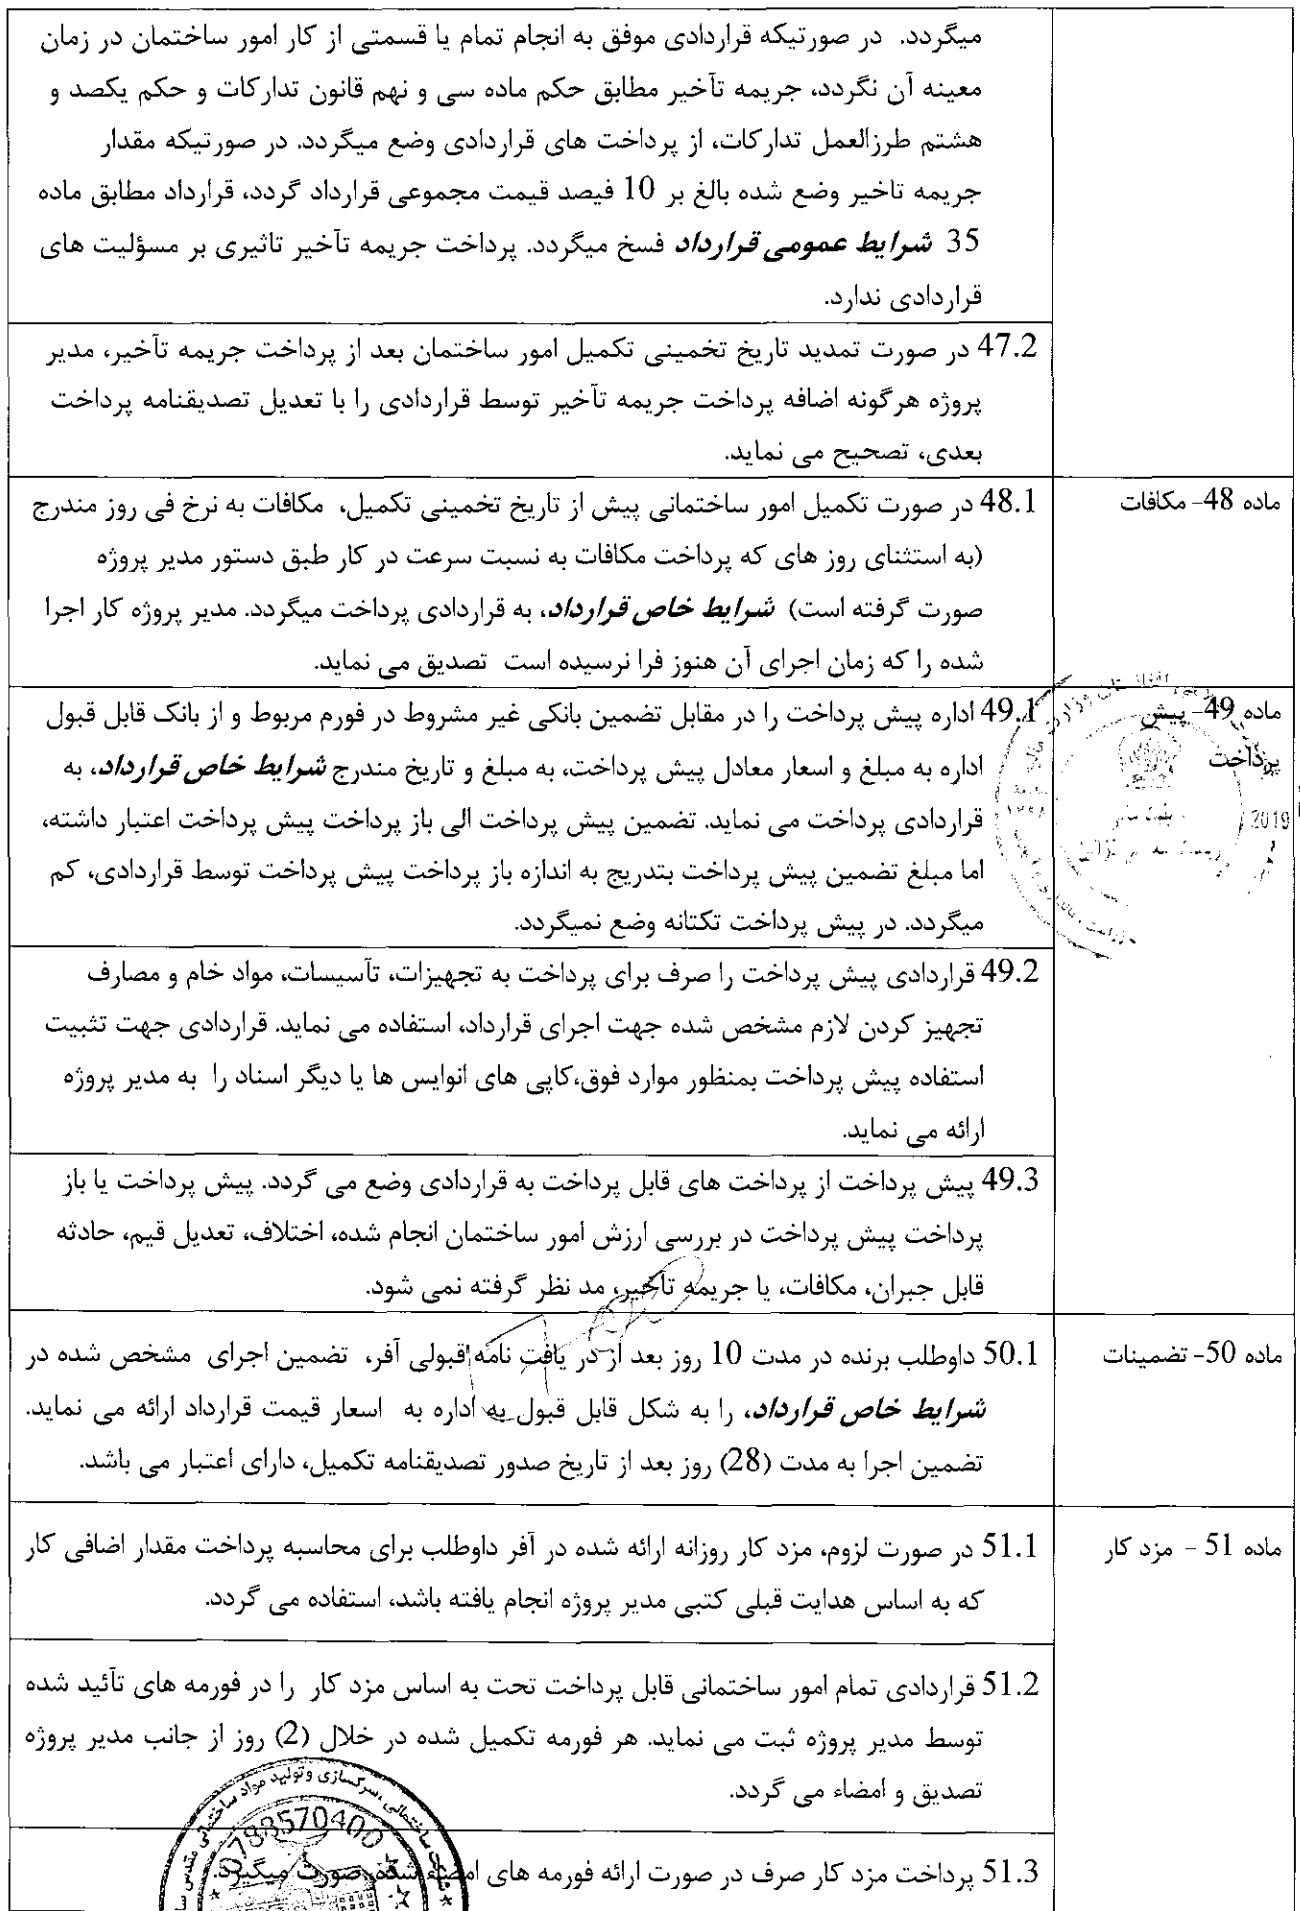 میگردد. در صورتیکه قراردادی موفق به انجام تمام یا قسمتی از کار امور ساختمان در زمان
معینه آن نگردد، جریمه تآخیر مطابق حکم ماده سی و نهم قانون تدارکات و حکم یکصد و
هشتم طرزالعمل تدارکات، از پرداخت های قراردادی وضع میگردد. در صورتیکه مقدار
جریمه تاخیر وضع شده بالغ بر 10 فیصد قیمت مجموعی قرارداد گردد، قرارداد مطابق ماده
35 شرایط عمومی قرارداد فسخ میگردد. پرداخت جریمه تآخیر تاثیری بر مسؤلیت های
قراردادی ندارد.
47.2 در صورت تمدید تاریخ تخمینی تکمیل امور ساختمان بعد از پرداخت جریمه تآخیر، مدیر
پروژه هرگونه اضافه پرداخت جریمه تآخیر توسط قراردادی را با تعدیل تصدیقنامه پرداخت
بعدی، تصحیح می نماید.
ماده 48- مکافات
48.1 در صورت تکمیل امور ساختمانی پیش از تاریخ تخمینی تکمیل، مکافات به نرخ فی روز مندرج
(به استثنای روز های که پرداخت مکافات به نسبت سرعت در کار طبق دستور مدیر پروژه
صورت گرفته است) شرایط خاص قرارداد، به قراردادی پرداخت میگردد. مدیر پروژه کار اجرا
شده را که زمان اجرای آن هنوز فرا نرسیده است تصدیق می نماید.
ماده 49- پیش
پرداخت
2019
49.1 اداره پیش پرداخت را در مقابل تضمین بانکی غیر مشروط در فورم مربوط و از بانک قابل قبول
اداره به مبلغ و اسعار معادل پیش پرداخت، به مبلغ و تاریخ مندرج شرایط خاص قرارداد، به
قراردادی پرداخت می نماید. تضمین پیش پرداخت الی باز پرداخت پیش پرداخت اعتبار داشته،
اما مبلغ تضمین پیش پرداخت بتدریج به اندازه باز پرداخت پیش پرداخت توسط قراردادی، کم
میگردد. در پیش پرداخت تکتانه وضع نمیگردد.
49.2 قراردادی پیش پرداخت را صرف برای پرداخت به تجهیزات، تآسیسات، مواد خام و مصارف
تجهیز کردن لازم مشخص شده جهت اجرای قرارداد، استفاده می نماید. قراردادی جهت تثبیت
استفاده پیش پرداخت بمنظور موارد فوق،کاپی های انوایس ها یا دیگر اسناد را به مدیر پروژه
ارائه می نماید.
49.3 پیش پرداخت از پرداخت های قابل پرداخت به قراردادی وضع می گردد. پیش پرداخت یا باز
پرداخت پیش پرداخت در بررسی ارزش امور ساختمان انجام شده، اختلاف، تعدیل قیم، حادثه
قابل جبران، مکافات، یا جریمه تاخیر، مد نظر گرفته نمی شود.
ماده 50- تضمینات
50.1 داوطلب برنده در مدت 10 روز بعد از در یافت نامه قبولی آفر، تضمین اجرای مشخص شده در
شرایط خاص قرارداد، را به شکل قابل قبول به اداره به اسعار قیمت قرارداد ارائه می نماید.
تضمین اجرا به مدت (28) روز بعد از تاریخ صدور تصدیقنامه تکمیل، دارای اعتبار می باشد.
ماده 51 - مزد کار
51.1 در صورت لزوم، مزد کار روزانه ارائه شده در آفر داوطلب برای محاسبه پرداخت مقدار اضافی کار
که به اساس هدایت قبلی کتبی مدیر پروژه انجام یافته باشد، استفاده می گردد.
51.2 قراردادی تمام امور ساختمانی قابل پرداخت تحت به اساس مزد کار را در فورمه های تآئید شده
توسط مدیر پروژه ثبت می نماید. هر فورمه تکمیل شده در خلال (2) روز از جانب مدیر پروژه
تصدیق و امضاء می گردد.
51.3 پرداخت مزد کار صرف در صورت ارائه فورمه های امضاء شده، صورت میگیرد.
ساختمانی ،سرکسازی وتولید مواد ساختمانی مقدس
0788570400